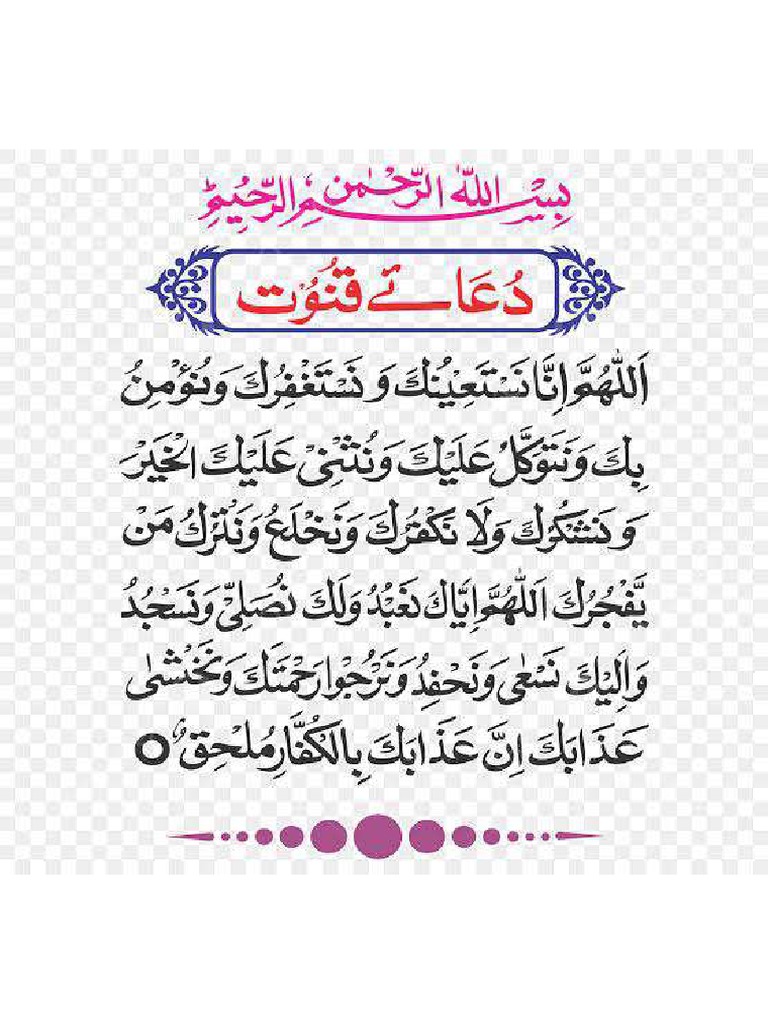 بِسْمِ اللهِ الرَّحْمٰنِ الرَّحِيْمِ
دُعَائے قُنُوْت
اَللّٰهُمَّ اِنَّا نَسْتَعِيْنُكَ وَ نَسْتَغْفِرُكَ وَنُؤْمِنُ
بِكَ وَنَتَوَكَّلُ عَلَيْكَ وَنُثْنِيْ عَلَيْكَ الْخَيْرَ
وَ نَشْكُرُكَ وَلَا نَكْفُرُكَ وَنَخْلَعُ وَنَتْرُكُ مَنْ
يَّفْجُرُكَ اَللّٰهُمَّ اِيَّاكَ نَعْبُدُ وَلَكَ نُصَلِّيْ وَنَسْجُدُ
وَاِلَيْكَ نَسْعٰى وَنَحْفِدُ وَنَرْجُوْا رَحْمَتَكَ وَنَخْشٰى
عَذَابَكَ اِنَّ عَذَابَكَ بِالْكُفَّارِ مُلْحِقٌ ○